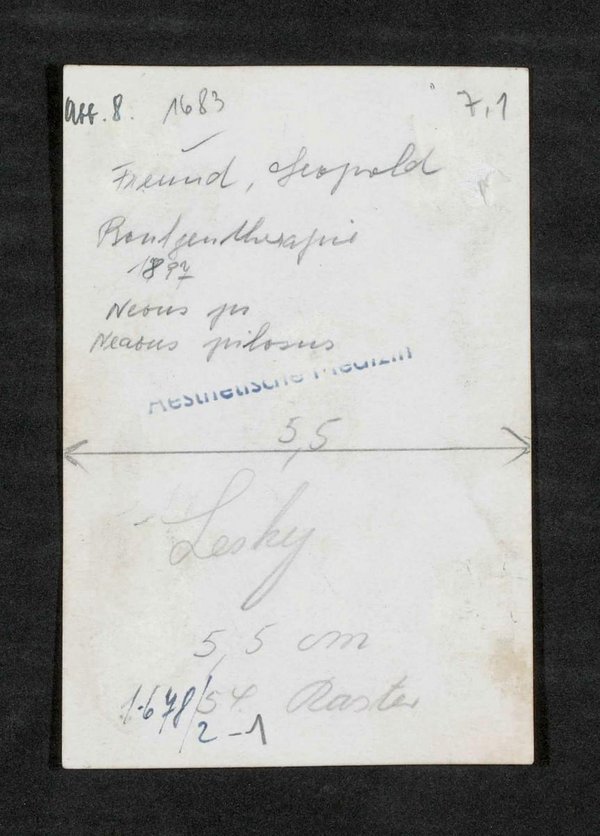 8. 1683 7,1
Freund, Leopold
Röntgentherapie
1897
Neous pi
Neaous pilosus
Aesthetische Medizin
5,5
Lesky
5,5 cm
54. Raster
1.678/2-1